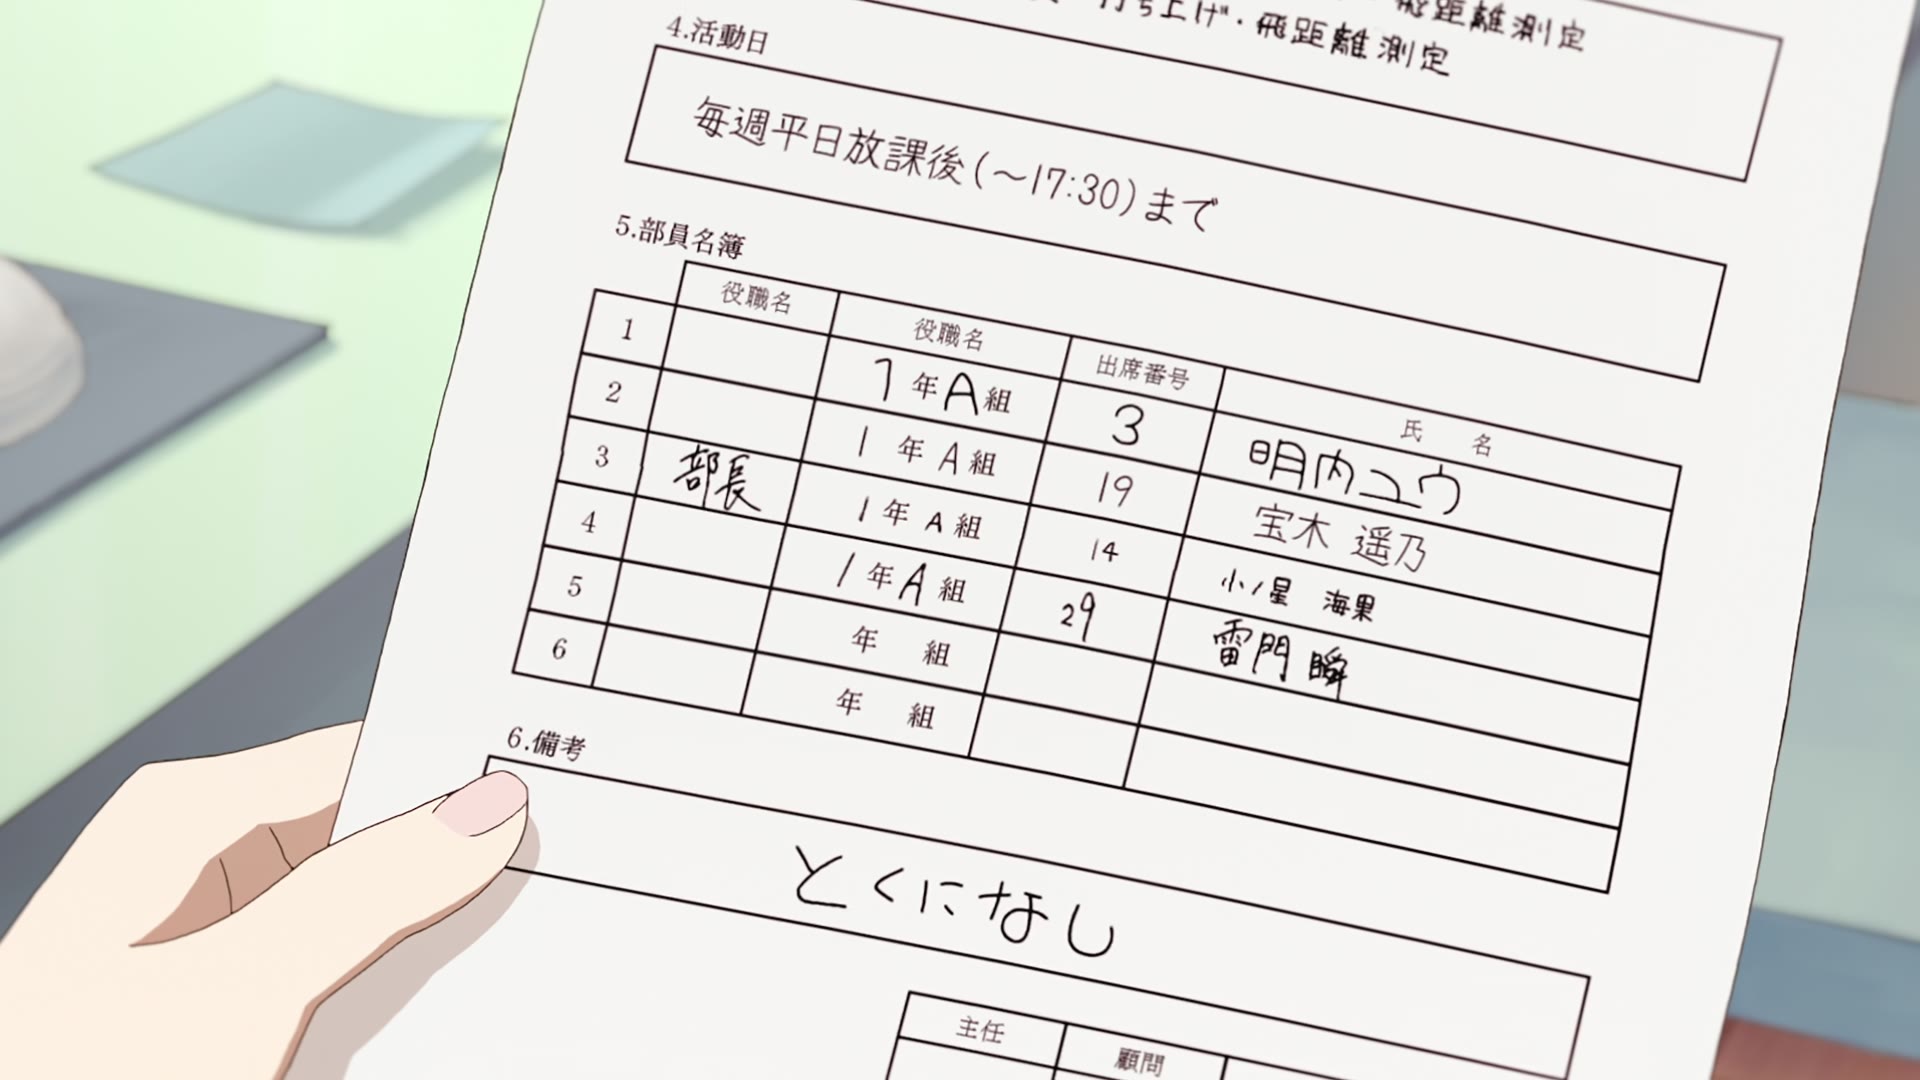 飛距離測定
打ち上げ・飛距離測定
4.活動日
毎週平日放課後(～17:30)まで
5.部員名簿
役職名 役職名 出席番号 氏 名
1 1年A組 3 明内ユウ
2 1年A組 19 宝木 遥乃
3 部長 1年A組 14 小ノ星 海果
4 1年A組 29 雷門 瞬
5 年 組
6 年 組
6.備考
とくになし
主任 顧問